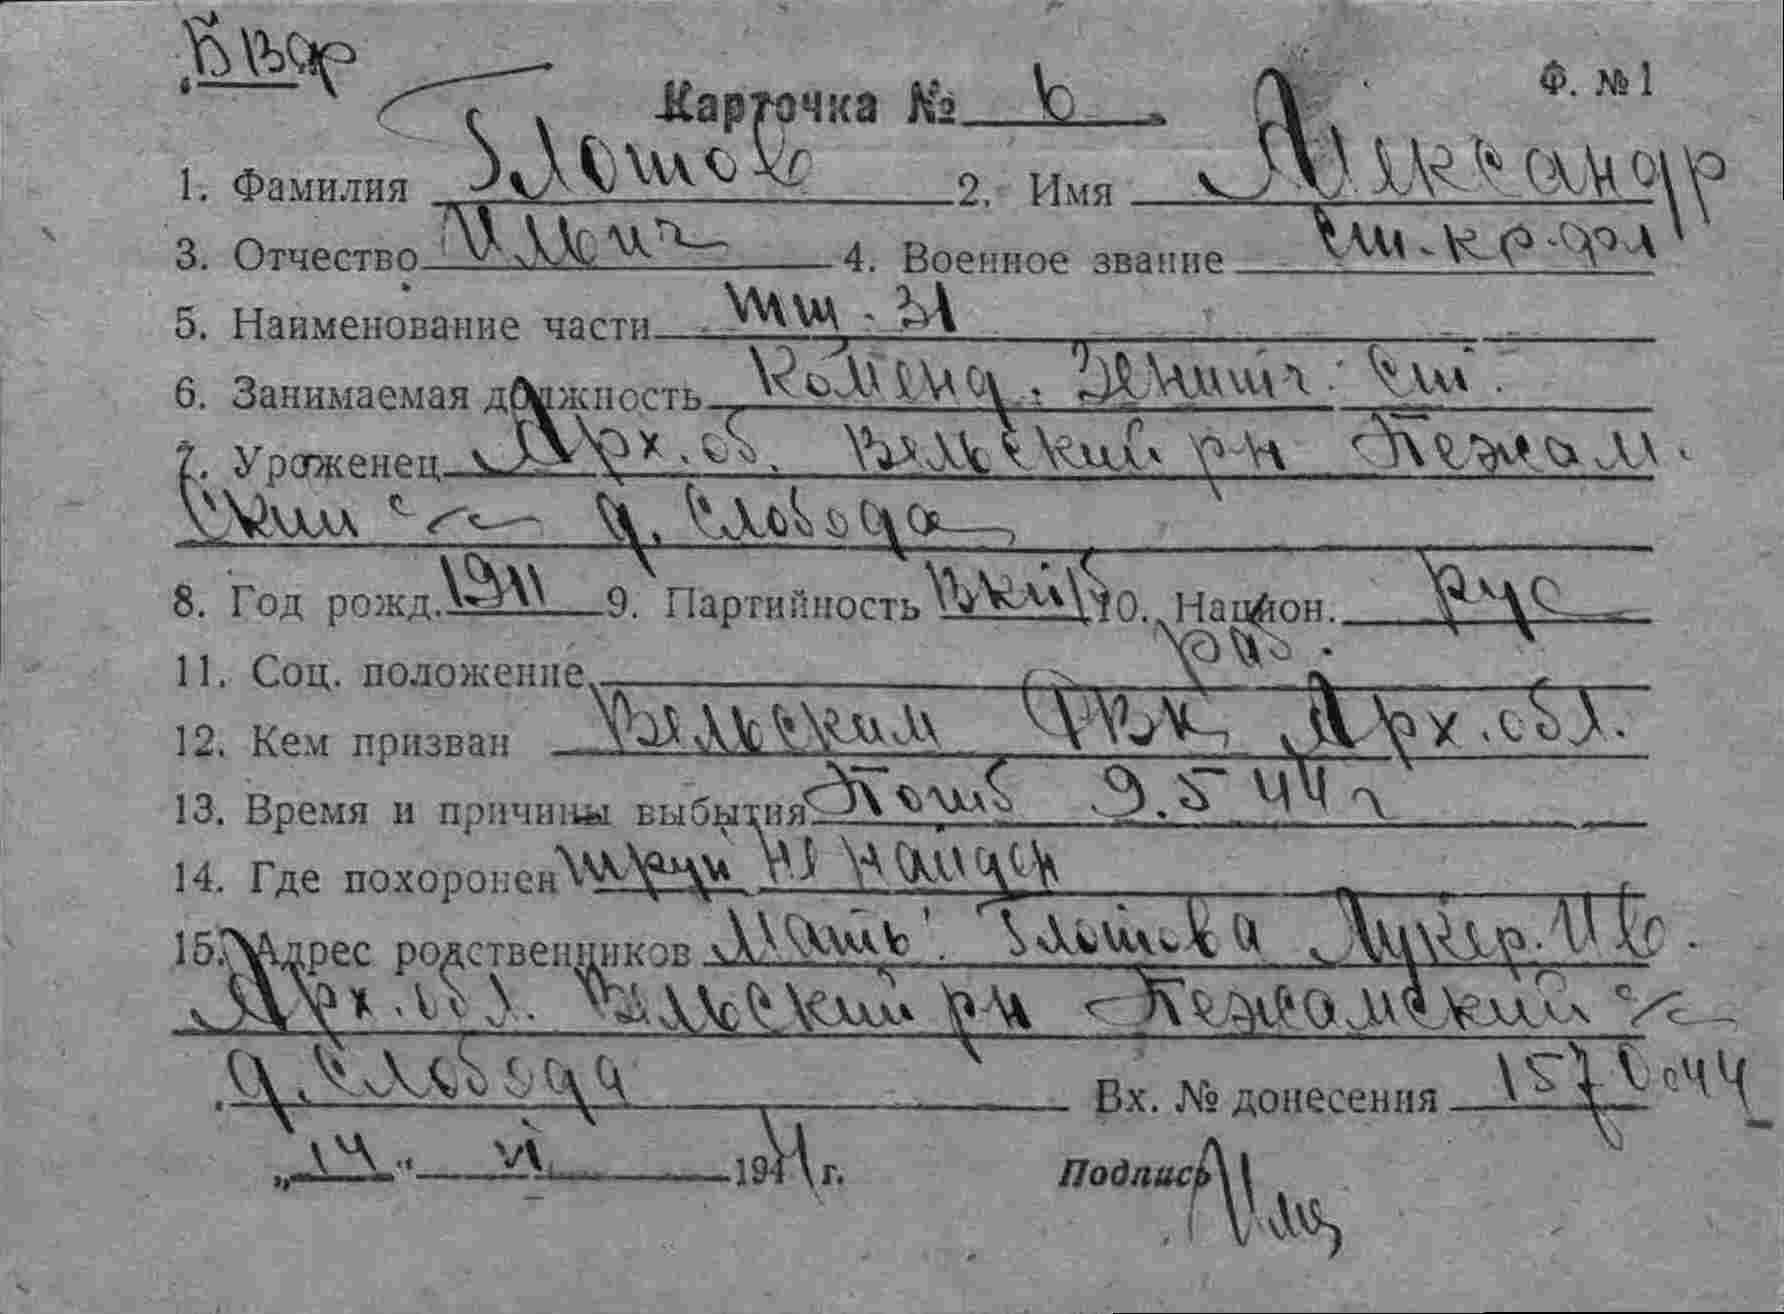 Ф. № 1
Карточка №
1. Фамилия Глотов 2. Имя Александр
3. Отчество Ильич 4. Военное звание ст. кр-фл
5. Наименование части тщ-31
6. Занимаемая должность Коменд. Зенитч. ст.
7. Уроженец Арх. об. Вельский рн Пежам.
ский с/с д. Слобода
8. Год рожд. 1911 9. Партийность ВКП/б 10. Национ. рус
11. Соц. положение раб.
12. Кем призван Вельским РВК Арх. обл.
13. Время и причины выбытия Погиб 9.5 44 г
14. Где похоронен труп не найден
15. Адрес родственников Мать: Глотова Лукер. Ив.
Арх. обл. Вельский рн Пежамский с/с
д. Слобода Вх. № донесения
„14“ VI 1944 г. Подпись